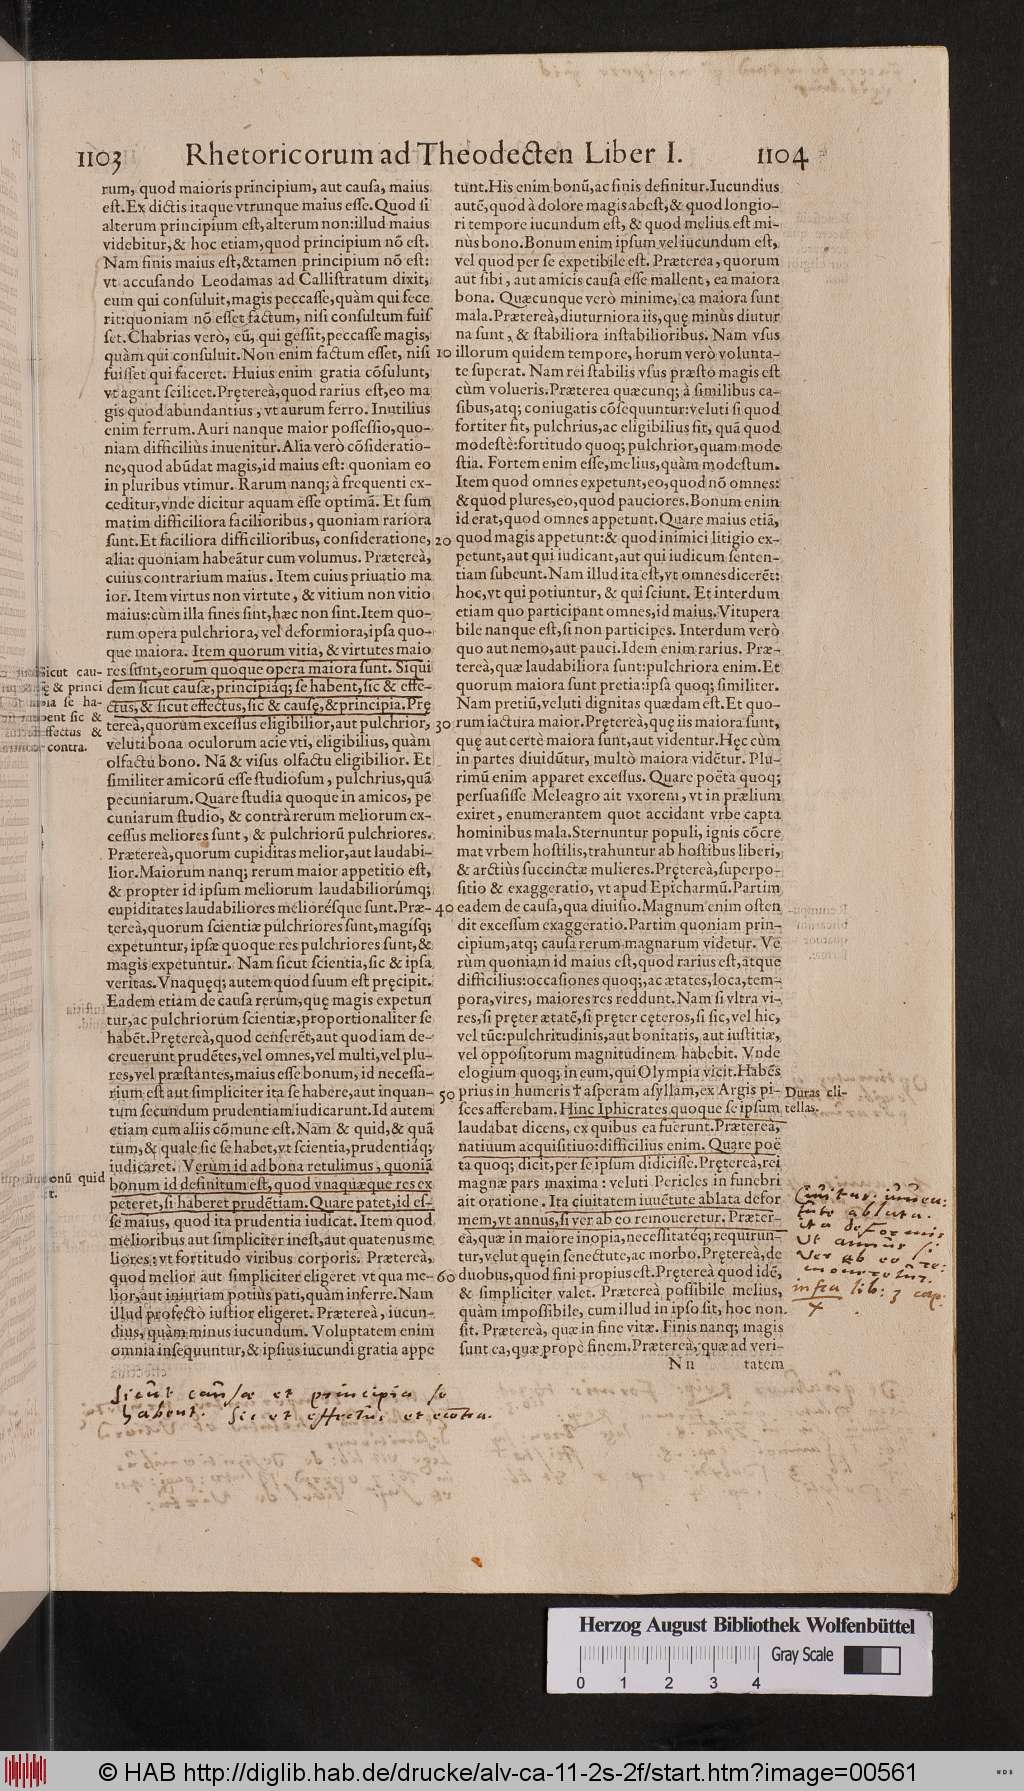 1103 Rhetoricorum ad Theodecten Liber I. 1104
rum, quod maioris principium, aut causa, maius
est. Ex dictis itaque vtrunque maius esse. Quod si
alterum principium est, alterum non: illud maius
videbitur, & hoc etiam, quod principium nõ est.
Nam finis maius est, & tamen principium nõ est:
vt accusando Leodamas ad Callistratum dixit,
eum qui consuluit, magis peccasse, quàm qui fece
rit: quoniam nõ esset factum, nisi consultum fuis
set. Chabrias verò, cũ, qui gessit, peccasse magis,
quàm qui consuluit. Non enim factum esset, nisi
fuisset qui faceret. Huius enim gratia cõsulunt,
vt agant scilicet. Pręterea, quod rarius est, eo ma
gis quod abundantius, vt aurum ferro. Inutilius
enim ferrum. Auri nanque maior possessio, quo-
niam difficilius inuenitur. Alia verò cõsideratio-
ne, quod abũdat magis, id maius est: quoniam eo
in pluribus vtimur. Rarum nanq; à frequenti ex-
ceditur, vnde dicitur aquam esse optimã. Et sum
matim difficiliora facilioribus, quoniam rariora
sunt. Et faciliora difficilioribus, consideratione,
alia: quoniam habeãtur cum volumus. Prætereà,
cuius contrarium maius. Item cuius priuatio ma
ior. Item virtus non virtute, & vitium non vitio
maius: cùm illa fines sint, hæc non sint. Item quo-
rum opera pulchriora, vel deformiora, ipsa quo-
que maiora. Item quorum vitia, & virtutes maio
res sunt, eorum quoque opera maiora sunt. Siqui
dem sicut causæ, principiáq; se habent, sic & effe-
ctus, & sicut effectus, sic & causę, & principia. Prę
tereà, quorum excessus eligibilior, aut pulchrior,
veluti bona oculorum acie vti, eligibilius, quàm
olfactu bono. Nã & visus olfactu eligibilior. Et
similiter amicorũ esse studiosum, pulchrius, quã
pecuniarum. Quare studia quoque in amicos, pe
cuniarum studio, & contrà rerum meliorum ex-
cessus meliores sunt, & pulchriorũ pulchriores.
Prætereà, quorum cupiditas melior, aut laudabi-
lior. Maiorum nanq; rerum maior appetitio est,
& propter id ipsum meliorum laudabiliorúmq;
cupiditates laudabiliores melioresque sunt. Præ-
tereà, quorum scientiæ pulchriores sunt, magisq;
expetuntur, ipsæ quoque res pulchriores sunt, &
magis expetuntur. Nam sicut scientia, sic & ipsa
veritas. Vnaquęq; autem quod suum est pręcipit.
Eadem etiam de causa rerum, quę magis expetun
tur, ac pulchriorum scientiæ, proportionaliter se
habẽt. Pręterea, quod censerẽt, aut quod iam de-
creuerunt prudẽtes, vel omnes, vel multi, vel plu-
res, vel præstantes, maius esse bonum, id necessa-
rium est aut simpliciter ita se habere, aut inquan-
tum secundum prudentiam iudicarunt. Id autem
etiam cum aliis cõmune est. Nam & quid, & quã
tum, & quale sic se habet, vt scientia, prudentiáq;
iudicaret. Verùm id ad bona retulimus, quoniã
bonum id definitum est, quod vnaquæque res ex
peteret, si haberet prudẽtiam. Quare patet, id es-
se maius, quod ita prudentia iudicat. Item quod
melioribus aut simpliciter inest, aut quatenus me
liores: vt fortitudo viribus corporis. Prætereà,
quod melior aut simpliciter eligeret vt qua me-
lior, aut iniuriam potius pati, quàm inferre. Nam
illud profectò iustior eligeret. Prætereà, iucun-
dius, quàm minus iucundum. Voluptatem enim
omnia insequuntur, & ipsius iucundi gratia appe
Sicut cau-
& princi
pia se ha-
bent sic &
effectus &
contra.
onũ quid
10
20
30
40
50
60
tunt. His enim bonũ, ac finis definitur. Iucundius
autẽ, quod à dolore magis abest, & quod longio-
ri tempore iucundum est, & quod melius est mi-
nùs bono. Bonum enim ipsum vel iucundum est,
vel quod per se expetibile est. Præterea, quorum
aut sibi, aut amicis causa esse mallent, ea maiora
bona. Quæcunque verò minime, ea maiora sunt
mala. Prætereà, diuturniora iis, quę minùs diutur
na sunt, & stabiliora instabilioribus. Nam vsus
illorum quidem tempore, horum verò volunta-
te superat. Nam rei stabilis vsus præsto magis est
cùm volueris. Præterea quæcunq; à similibus ca-
sibus, atq; coniugatis cõsequuntur: veluti si quod
fortiter fit, pulchrius, ac eligibilius fit, quã quod
modestè: fortitudo quoq; pulchrior, quam mode
stia. Fortem enim esse, melius, quàm modestum.
Item quod omnes expetunt, eo, quod nõ omnes:
& quod plures, eo, quod pauciores. Bonum enim
id erat, quod omnes appetunt. Quare maius etiã,
quod magis appetunt: & quod inimici litigio ex-
petunt, aut qui iudicant, aut qui iudicum senten-
tiam subeunt. Nam illud ita est, vt omnes dicerẽt:
hoc, vt qui potiuntur, & qui sciunt. Et interdum
etiam quo participant omnes, id maius. Vitupera
bile nanque est, si non participes. Interdum verò
quo aut nemo, aut pauci. Idem enim rarius. Præ-
tereà, quæ laudabiliora sunt: pulchriora enim. Et
quorum maiora sunt pretia: ipsa quoq; similiter.
Nam pretiũ, veluti dignitas quædam est. Et quo-
rum iactura maior. Pręterea, quę iis maiora sunt,
quę aut certè maiora sunt, aut videntur. Hęc cùm
in partes diuidũtur, multò maiora vidẽtur. Plu-
rimũ enim apparet excessus. Quare poëta quoq;
persuasisse Meleagro ait vxorem, vt in prælium
exiret, enumerantem quot accidant vrbe capta
hominibus mala. Sternuntur populi, ignis cõcre
mat vrbem hostilis, trahuntur ab hostibus liberi,
& arctiùs succinctæ mulieres. Pręterea, superpo-
sitio & exaggeratio, vt apud Epicharmũ. Partim
eadem de causa, qua diuisio. Magnum enim osten
dit excessum exaggeratio. Partim quoniam prin-
cipium, atq; causa rerum magnarum videtur. Ve
rùm quoniam id maius est, quod rarius est, atque
difficilius: occasiones quoq;, ac ætates, loca, tem-
pora, vires, maiores res reddunt. Nam si vltra vi-
res, si pręter ætatẽ, si pręter cęteros, si sic, vel hic,
vel tũc: pulchritudinis, aut bonitatis, aut iustitiæ,
vel oppositorum magnitudinem habebit. Vnde
elogium quoq; in eum, qui Olympia vicit. Habẽs
prius in humeris † asperam asyllam, ex Argis pi-
sces afferebam. Hinc Iphicrates quoque se ipsum
laudabat dicens, ex quibus ea fuerunt. Præterea,
natiuum acquisitiuo: difficilius enim. Quare poë
ta quoq; dicit, per se ipsum didicisse. Pręterea, rei
magnæ pars maxima: veluti Pericles in funebri
ait oratione. Ita ciuitatem iuuẽtute ablata defor
mem, vt annus, si ver ab eo remoueretur. Præter-
eà, quæ in maiore inopia, necessitatéq; requirun-
tur, velut quę in senectute, ac morbo. Pręterea, de
duobus, quod fini propius est. Pręterea quod idẽ,
& simpliciter valet. Præterea possibile melius,
quàm impossibile, cum illud in ipso sit, hoc non
sit. Prætereà, quæ in fine vitæ. Finis nanq; magis
sunt ea, quæ propè finem. Prætereà, quæ ad veri-
Nn tatem
Duras cli-
tellas.
Ciuitas iuuen-
tute ablata.
ita deformis
ut annus si
ver ab eo re-
moueretur.
infra lib: 3 cap.
Sicut causæ et principia se
habent. sic et effectus et econtra.
Herzog August Bibliothek Wolfenbüttel
Gray Scale
0 1 2 3 4
© HAB http://diglib.hab.de/drucke/alv-ca-11-2s-2f/start.htm?image=00561